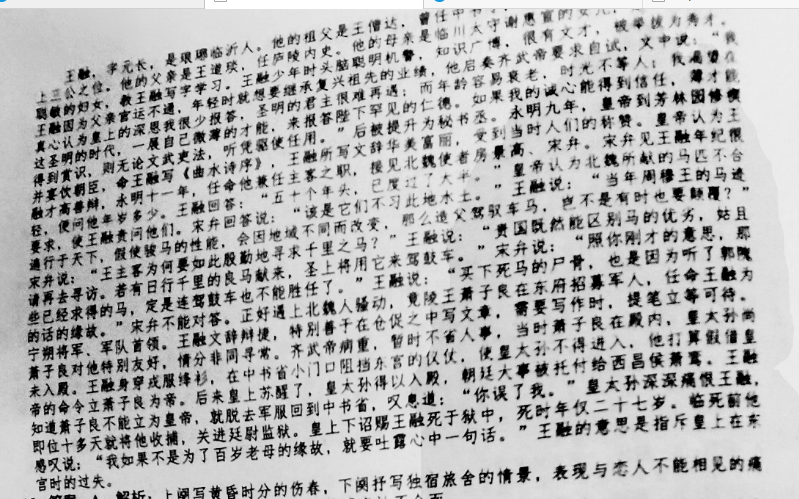 王融，字元长，是琅琊临沂人。他的祖父是王僧达，曾任中书
上三公之位。他的父亲是王道琰，任庐陵内史。他的母亲是临川太守谢惠宣的女儿，
聪敏的妇女，教王融写字学习。王融少年时头脑聪明机警，知识广博，很有文才，被举拔为秀才。
王融因为父亲官运不通，年轻时就想要继承复兴祖先的业绩，他启奏齐武帝要求自试，文中说：“我
真心认为皇上的深恩我很少报答，圣明的君主很难再遇；而年龄容易衰老，时光不等人；我渴望在
这圣明的时代，一展自己微薄的才能，来报答陛下罕见的仁德。如果我的诚心能得到信任，薄才能
得到赏识，则无论文武吏法，听凭驱使任用。”后被提升为秘书丞。永明九年，皇帝到芳林园修禊
并宴饮朝臣，命王融写《曲水诗序》，王融所写文辞华美富丽，受到当时人们的称赞。皇帝认为王
融才高善辩，永明十一年，任命他兼任主客之职，接见北魏使者房景高、宋弁。宋弁见王融年纪很
轻，便问他年岁多少。王融回答：“五十个年头，已度过了大半。”皇帝认为北魏所献的马匹不合
要求，使王融责问他们。宋弁回答说：“该是它们不习此地水土。”王融说：“当年周穆王的马迹
遍行于天下，假使骏马的性能，会因地域不同而改变，那么造父驾驭车马，岂不是有时也要颠覆？”
宋弁说：“王主客为何要如此殷勤地寻求千里之马？”王融说：“贵国既然能区别马的优劣，姑且
请再去寻访。若有日行千里的良马献来，圣上将用它来驾鼓车。”宋弁说：“照你刚才的意思，那
些已经求得的马，定是连驾鼓车也不能胜任了。”王融说：“买下死马的尸骨，也是因为听了郭隗
的话的缘故。”宋弁不能对答。正好遇上北魏人骚动，竟陵王萧子良在东府招募军人，任命王融为
宁朔将军、军队首领。王融文辞辩捷，特别善于在仓促之中写文章，需要写作时，提笔立等可待。
萧子良对他特别友好，情分非同寻常。齐武帝病重，暂时不省人事，当时萧子良在殿内，皇太孙尚
未入殿。王融身穿戎服绛衫，在中书省小门口阻挡东宫的仪仗，使皇太孙不得进入，他打算假借皇
帝的命令立萧子良为帝。后来皇上苏醒了，皇太孙得以入殿，朝廷大事被托付给西昌侯萧鸾。王融
知道萧子良不能立为皇帝，就脱去军服回到中书省，叹息道：“你误了我。”皇太孙深深痛恨王融，
即位十多天就将他收捕，关进廷尉监狱。皇上下诏赐王融死于狱中，死时年仅二十七岁。临死前他
感叹说：“我如果不是为了百岁老母的缘故，就要吐露心中一句话。”王融的意思是指斥皇上在东
宫时的过失。
解析：上阕写黄昏时分的伤春，下阕抒写独宿旅舍的情景，表现与恋人不能相见的痛